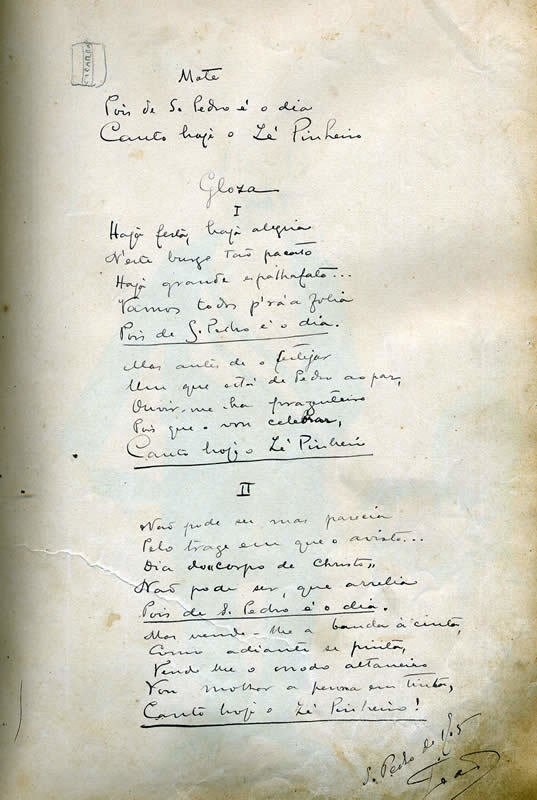 Mote
Pois de S. Pedro é o dia
Canto hoje o Zé Pinheiro
Gloza
I
Haja festa, haja alegria
N'este burgo tão pacato
Haja grande espalhafato...
Vamos todos p'rá a folia
Pois de S. Pedro é o dia.
Mas antes de o festejar
Um que está de Pedro ao par,
Ouvir-me-ha prazenteiro
Pois que o vou celebrar,
Canto hoje o Zé Pinheiro
II
Não pode ser mas parecia
Pelo trage em que o avisto...
Dia do "corpo de Christo"
Não pode ser, que arrelia
Pois de S. Pedro é o dia.
Mas vendo-lhe a banda à cinta,
Como adiante se pinta,
Vendo lhe o modo altaneiro
Vou molhar a penna em tinta,
Canto hoje o Zé Pinheiro!
S. Pedro de